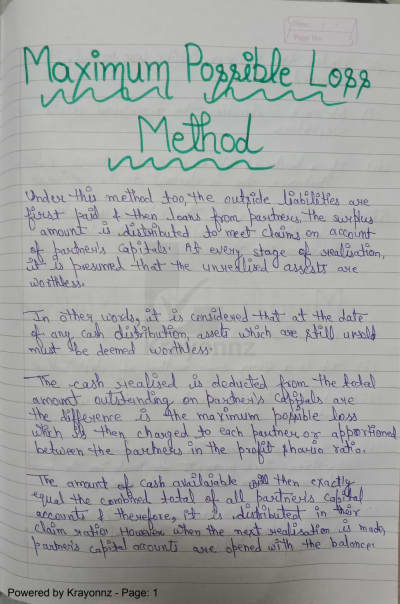 Maximum Possible Loss
Method
Under this method too, the outside liabilities are
first paid & then loans from partners, the surplus
amount is distributed to meet claims on account
of partner's capitals. At every stage of realisation,
it is presumed that the unrealised assests are
worthless.
In other words, it is considered that at the date
of any cash distribution, assets which are still unsold
must be deemed worthless.
The cash realised is deducted from the total
amount outstanding on partner's capitals are
the difference is the maximum possible loss
which is then charged to each partner or apportioned
between the partners in the profit sharing ratio.
The amount of cash available will then exactly
equal the combined total of all partner's capital
accounts & therefore, it is distributed in their
claim ratio. However when the next realisation is made,
partner's capital accounts are opened with the balances
Powered by Krayonnz - Page: 1